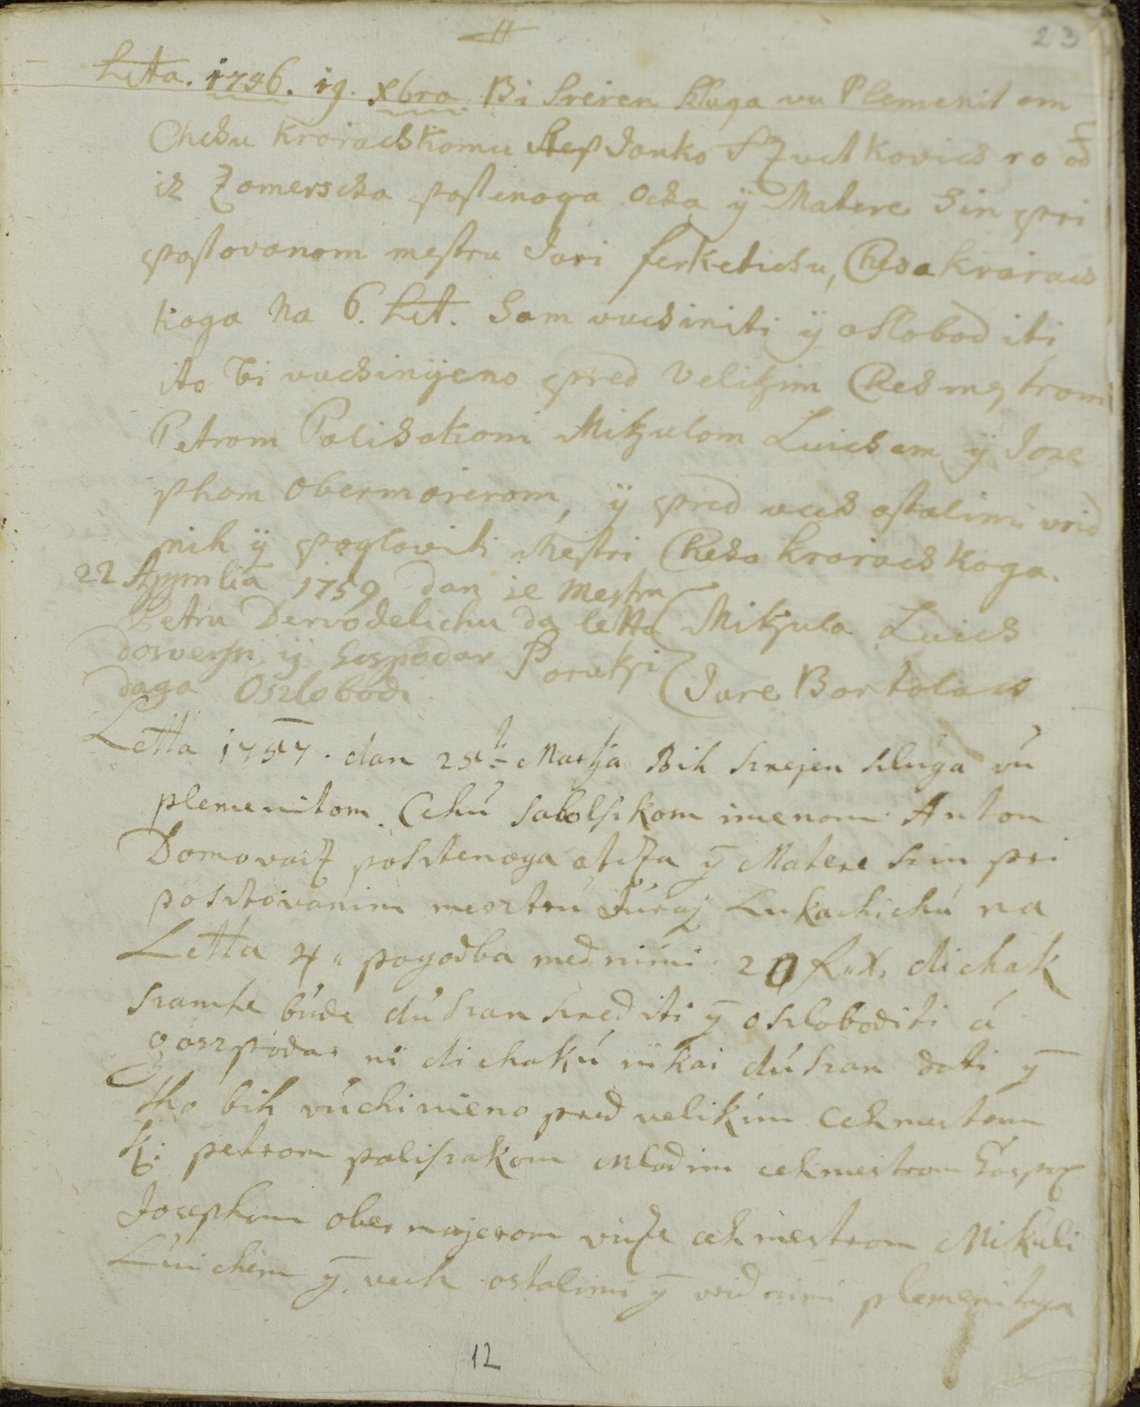 23
Letta. 1756. 19. Xbra Bi Sreien Sluga vu Plemenit om
Chehu kroiacskomu Step Janko Szvetkovics ro od
iz Zomerscka postenoga ocza ÿ Matere Sin pri
postovanom mestru Juri ferketichu, Cheha kroiacs
koga Na 6. Let. Sam vucsiniti ÿ osloboditi
ito bi vucsinÿeno pred Velikim Cheh mestrom
Petrom Polisakom Mikulom Luicsem ÿ Jose
phom obermaierom, ÿ pred vucs ostalimi vrid
nih ÿ pogloviti Mestri Cheha kroiacskoga.
22 Apprila 1759 dan ie Mestru
Petru Dervodelichu da letta
dosversi ÿ Gospodar
daga Oszlobodi
Poruksi
Mikula Luics
Jure Bortolacs
Letta 1757. dan 25ti Martza Bih srejen sluga vú
plemenitom Cehú sabolskom imenom Anton
Domovaitz postenoga otcza ÿ Matere szin pri
postovanim mesztru Júraj Lukachichú na
Letta 4 pogodba med nimi 20 f. X. dichak
szamse búde dúsan srediti ÿ oszloboditi á
goszpodar ni dichakú nikai dúsan dati ÿ
tho bih vúchinieno pred velikim Cehmestrom
ki petrom poliszakom mladim cehmestrom
Josephom obermajerom visze cehmestrom Mikuli
Lúichem ÿ vech ostalimi ÿ vridnimi plemenitoga
12